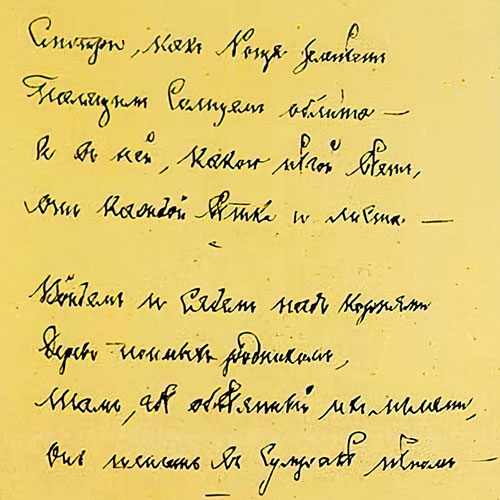 Смотри, какъ Роща зеленѣетъ
Палящимъ Солнцемъ облита —
А въ ней, какою нѣгой вѣетъ,
Отъ каждой вѣтки и листа —
Войдемъ и Сядемъ надъ корнями
Деревъ поимыхъ родникомъ,
Тамъ, гдѣ обвѣянный ихъ мглами,
Онъ шепчетъ въ Сумракѣ нѣмомъ —